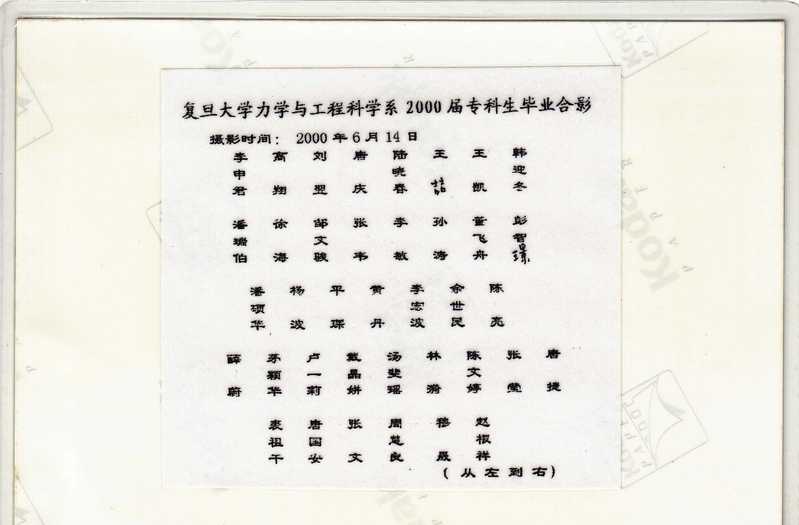 复旦大学力学与工程科学系 2000 届专科生毕业合影
摄影时间： 2000 年 6 月 14 日
李申君 高翔 刘翌 唐庆 陆晓春 王喆 王凯 韩迎冬
潘瑞伯 徐海 邹文骏 张韦 李敏 孙涛 董飞舟 彭智
潘硕华 杨波 平琛 黄丹 李宏波 余世民 陈亮
薛蔚 茅颖华 卢一莉 戴晶姘 汤斐瑶 林漪 陈文婷 张莹 唐捷
裘祖干 唐国安 张文 周慧良 穆晟 赵根祥
(从左到右)
Kodak
PAPER